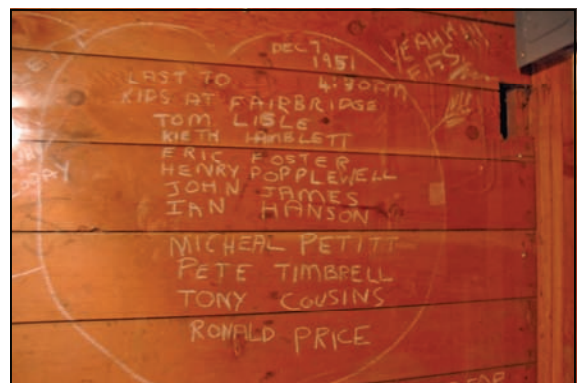 DEC 7
1951
4:30PM
YEAH!!!
LAST TO
KIDS AT FAIRBRIDGE
TOM LISLE
KIETH HAMBLETT
ERIC FOSTER
HENRY POPPLEWELL
JOHN JAMES
IAN HANSON
MICHEAL PETITT
PETE TIMBRELL
TONY COUSINS
RONALD PRICE